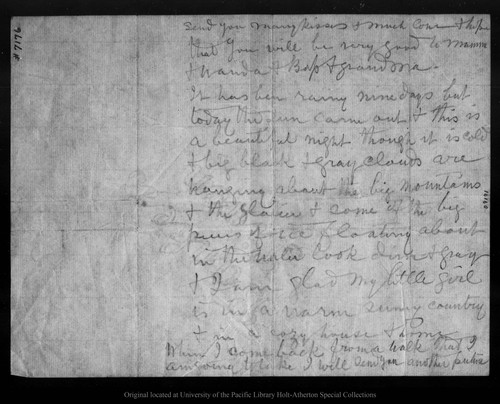 send you many kisses & much love & hope
that you will be very good to Mamma
& Wanda & Bap & grandma.
It has been rainy nine days but
today the sun came out & this is
a beautiful night though it is cold
& big black & gray clouds are
hanging about the big mountains
& the glacier & some of the big
pieces of ice floating about
in the water look dim & gray
& I am glad my little girl
is in a warm sunny country
& in a cozy house & home
When I come back from a walk that I
am going to take I will send you another picture
# 7176
Original located at University of the Pacific Library Holt-Atherton Special Collections